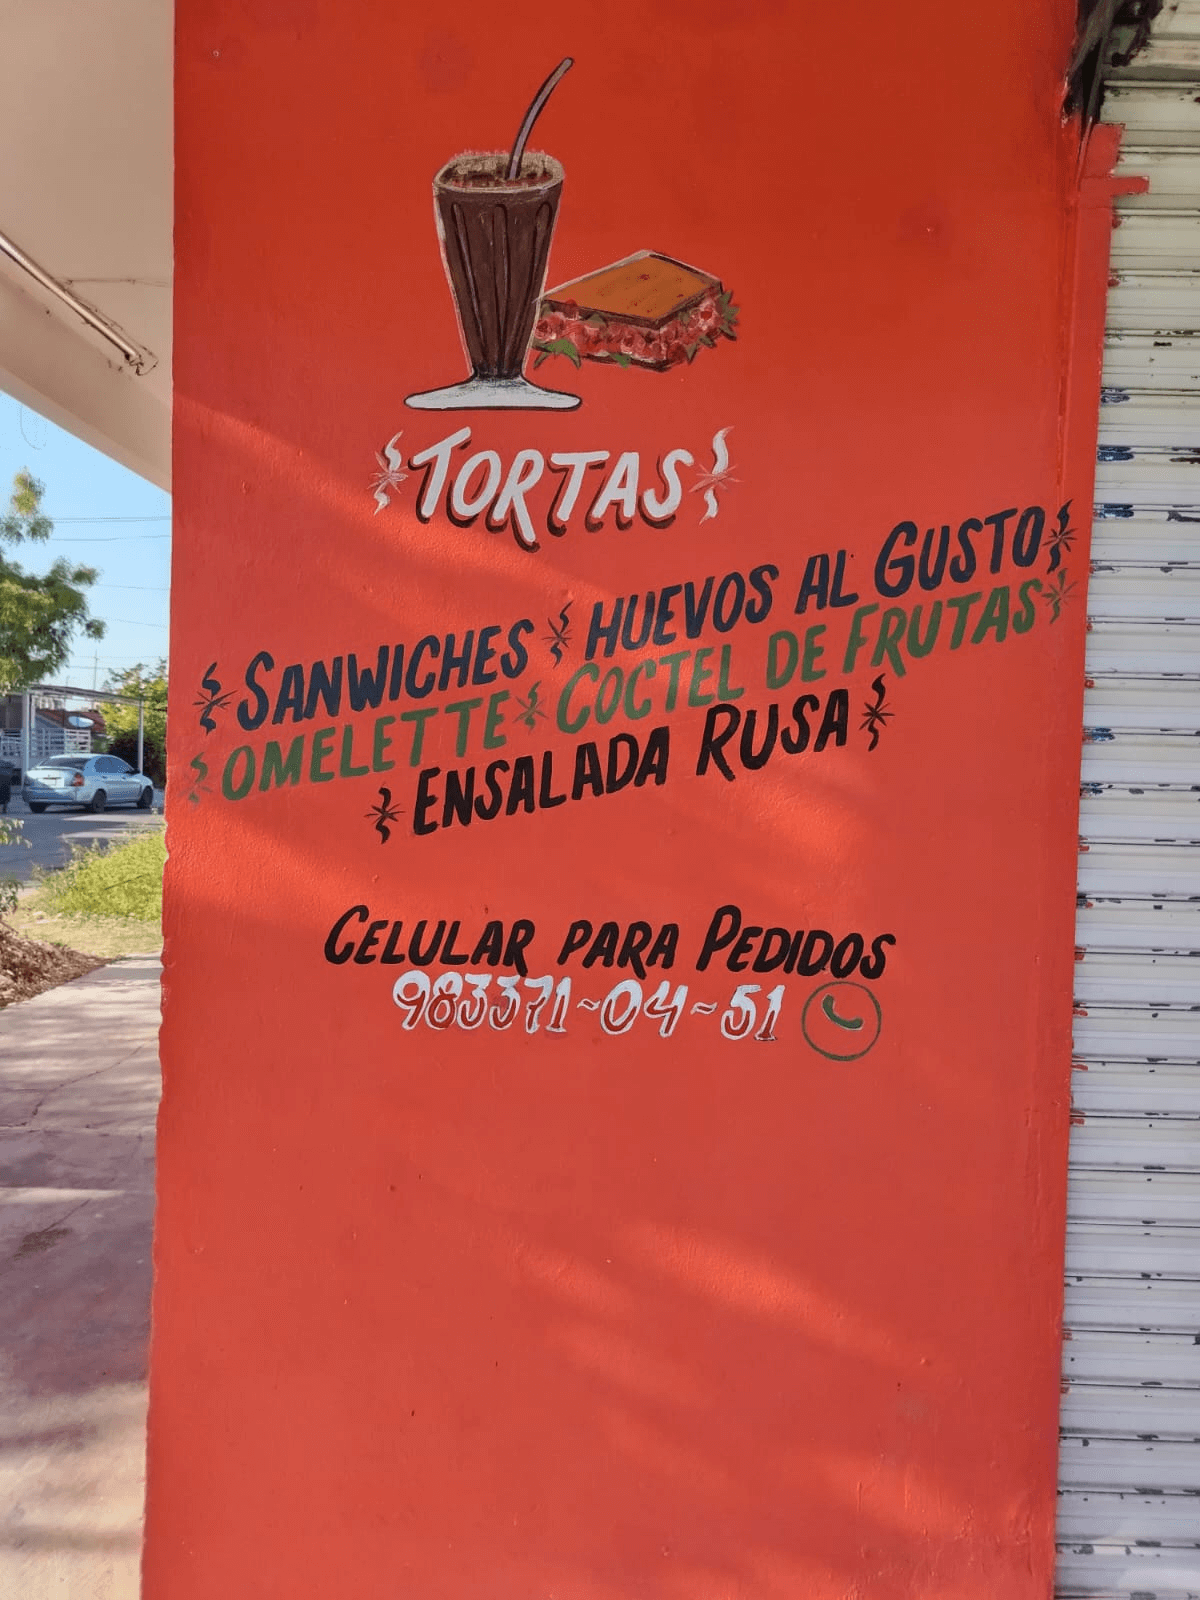 TORTAS
SANWICHES HUEVOS AL GUSTO
OMELETTE COCTEL DE FRUTAS
ENSALADA RUSA
CELULAR PARA PEDIDOS
983371~04~51